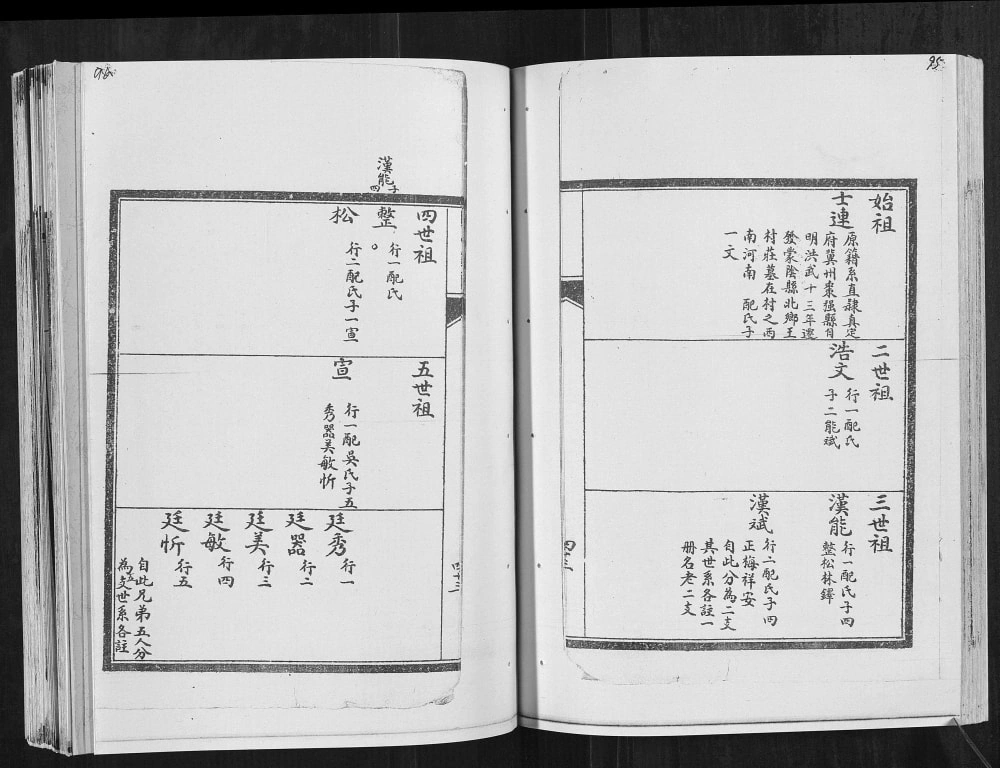 95
始祖
士連
原籍系直隸真定
府冀州棗强縣自
明洪武十三年遷
發蒙陰縣北鄉王
村莊墓在村之西
南河南 配氏子
一文
二世祖
浩文
行一配氏
子二能斌
三世祖
漢能
行一配氏子四
整松林鐸
漢斌
行二配氏子四
正梅祥安
自此分為二支
其世系各註一
册名老二支
四十二
漢能子四
四世祖
整
行一配氏
松
行二配氏子一宣
五世祖
宣
行一配吳氏子五
秀器美敏忻
廷秀
行一
廷器
行二
廷美
行三
廷敏
行四
廷忻
行五
自此兄弟五人分
為五支世系各註
四十三